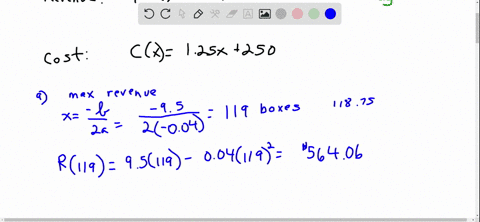 Cost: C(x) = 1.25x + 250
a) max revenue
x = -b/2a = -9.5/2(-0.04) = 119 boxes 118.75
R(119) = 9.5(119) - 0.04(119)² = $564.06